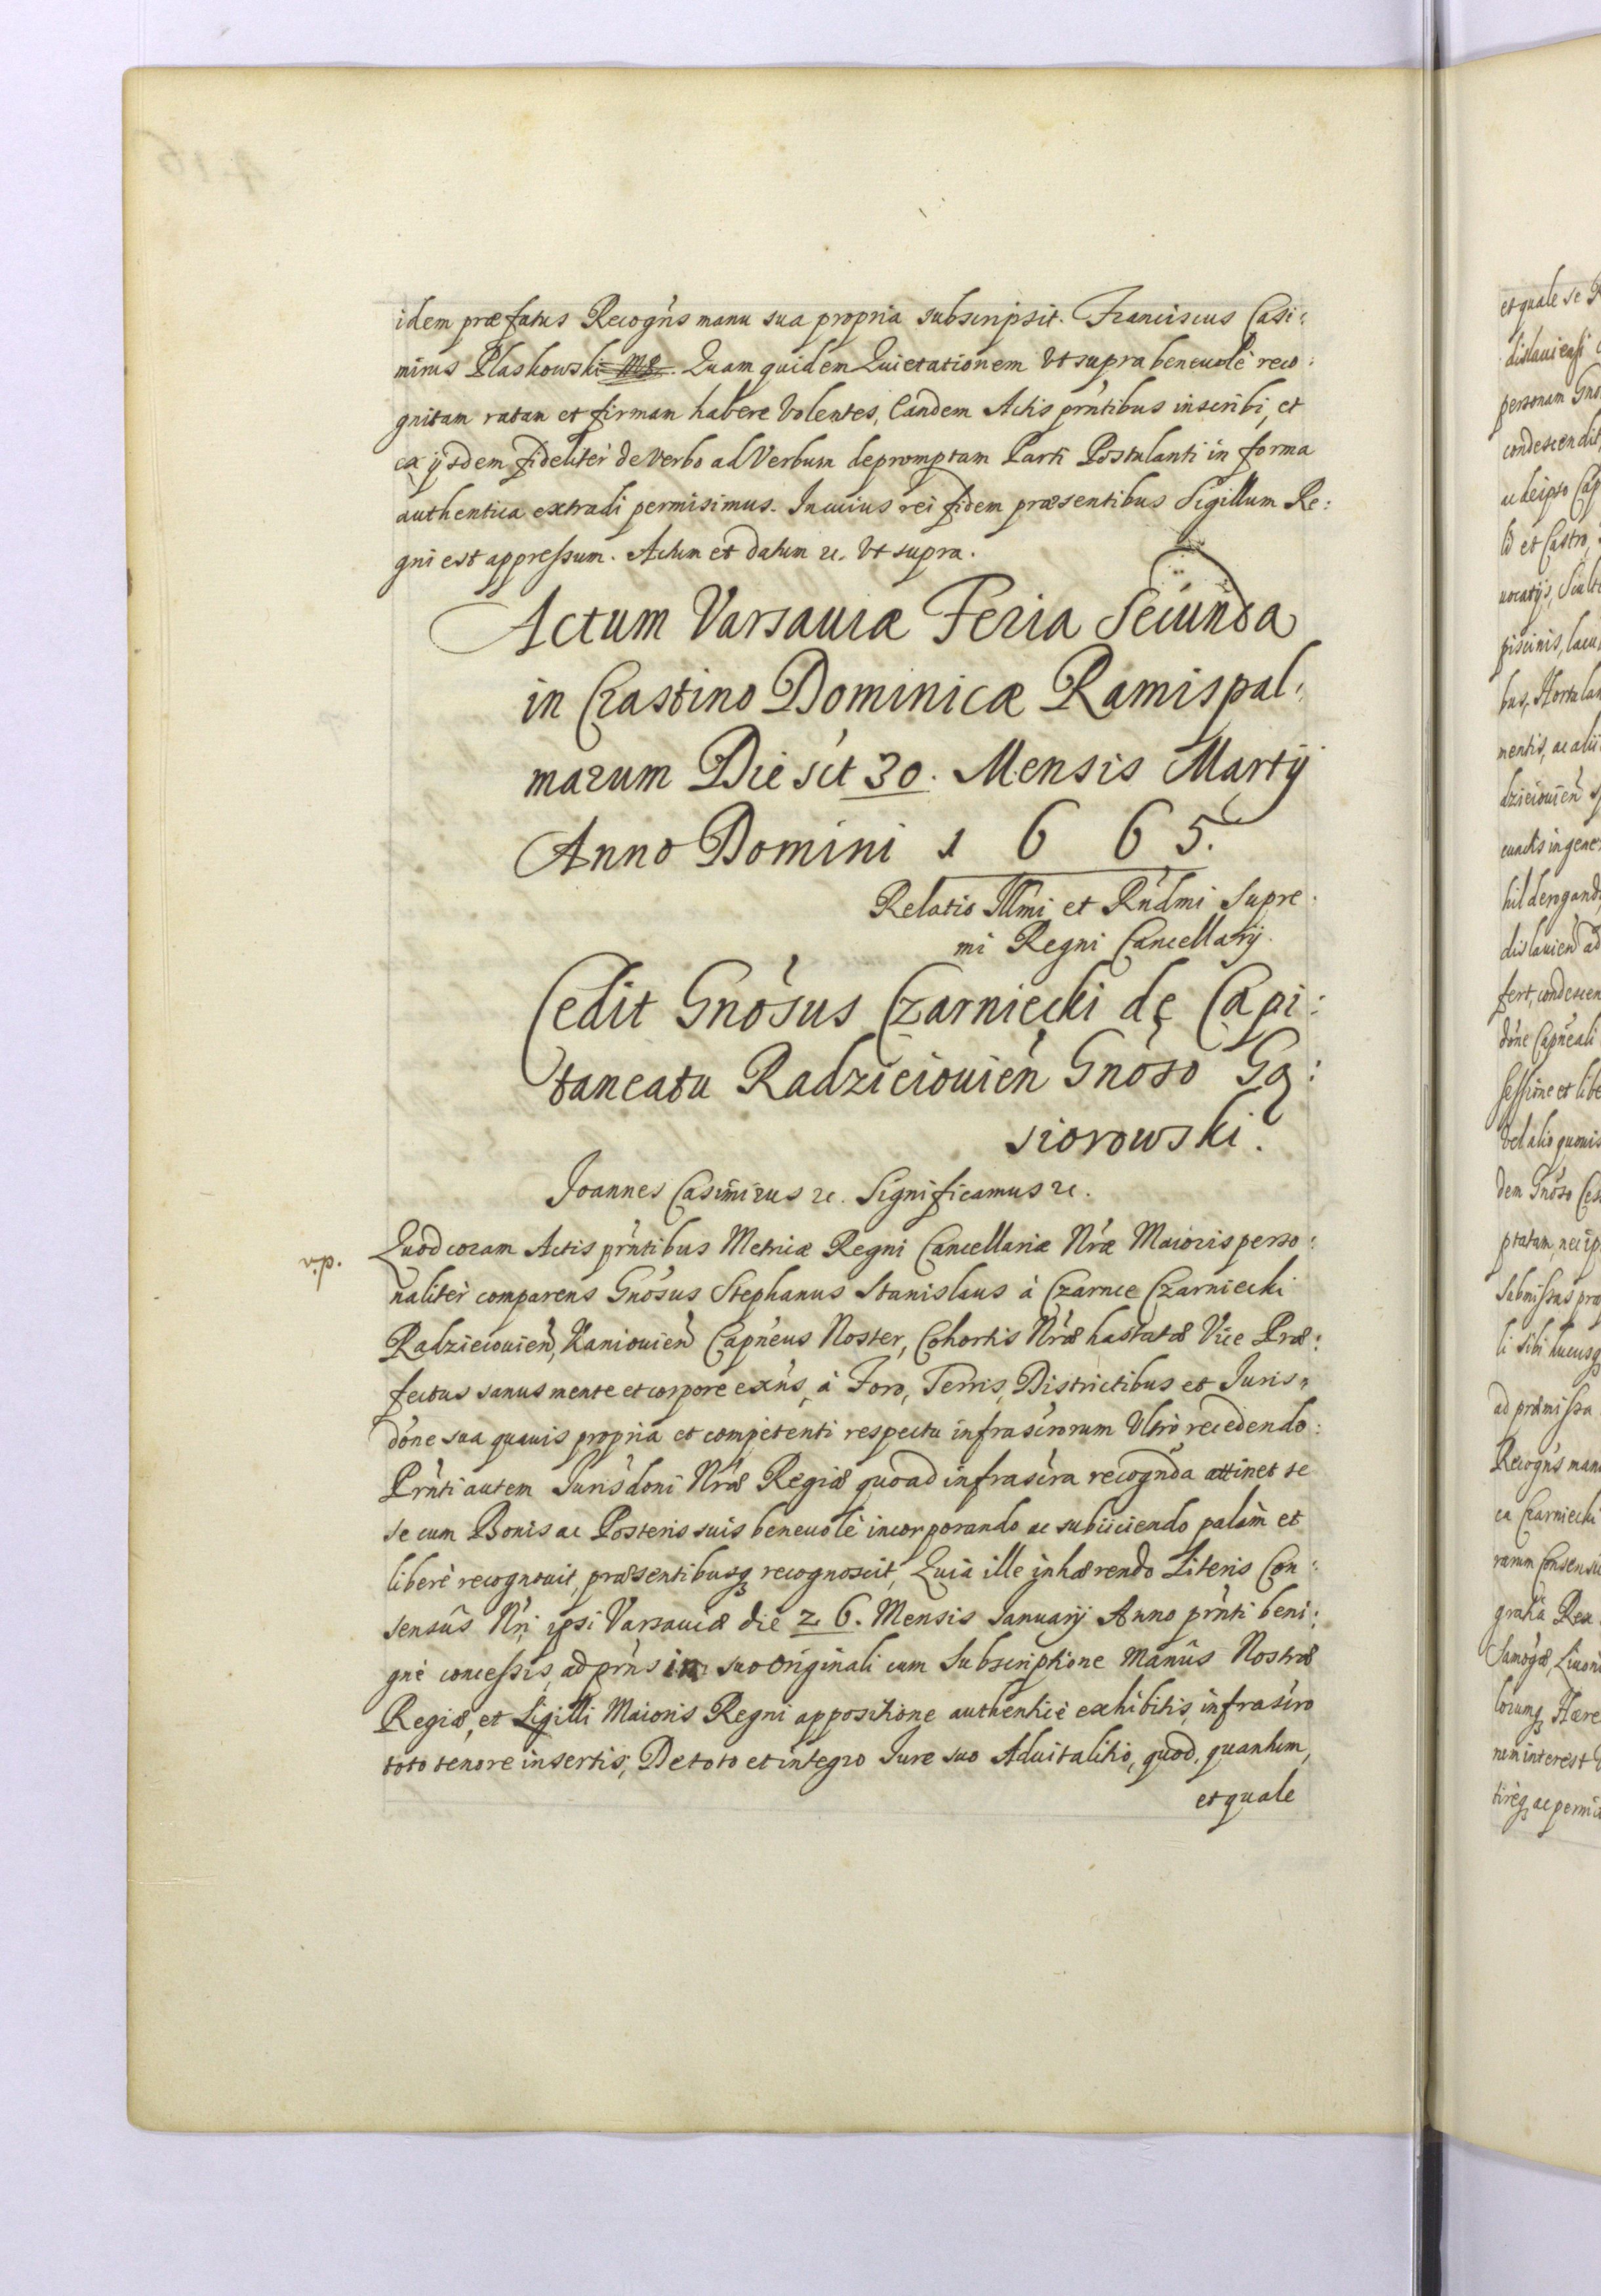 idem præfatus Recogńs manu sua propria subscripsit. Franciscus Casi:
mirus Plaskowski mp. Quam quidem Quietationem Vt supra beneuolè reco:
gnitam ratam et firmam habere Volentes, Eandem Actis prńtibus inscribi, et
ex ijsdem fideliter de Verbo ad Verbum depromptam Parti Postulanti in forma
authentica extradi permisimus. In cuius rei fidem præsentibus Sigillum Re:
gni est appressum. Actum et datum &c. Vt supra.
Actum Varsauiæ Feria Secunda
in Crastino Dominicæ Ramispal:
marum Die sct 30. Mensis Martij
Anno Domini 1665.
Relatio Illmi et Rńdmi Supre:
mi Regni Cancellarij.
Cedit Gnósus Czarniecki de Capi:
taneatu Radzieiouień Gnóso Gą:
siorowski.
Joannes Casimirus &c. Significamus &c.
v.p.
Quod coram Actis prńtibus Metricæ Regni Cancellariæ Nræ Maioris perso:
naliter comparens Gnósus Stephanus Stanislaus à Czarnce Czarniecki
Radzieiouień, Kaniouień Capńeus Noster, Cohortis Nræ hastatæ Vice Præ:
fectus sanus mente et corpore exńs, à Foro, Terris, Districtibus et Juris:
dóne sua quauis propria et competenti respectu infrascrorum Vltrò recedendo:
Prńti autem Jurisdoni Nræ Regiæ quoad infrascra recognda attinet se
se cum Bonis ac Posteris suis beneuolè incorporando ac subiiciendo palàm et
liberè recognouit, præsentibusq recognoscit, Quia ille inhærendo Literis Con:
sensûs Nri ipsi Varsauiæ die 26. Mensis Januarij Anno prńti beni:
gnè concessis, ad prńs in suo originali cum Subscriptione Manûs Nostræ
Regiæ, et Sigilli Maioris Regni appositione authenticè exhibitis, infrascro
toto tenore insertis, De toto et integro Jure suo Aduitalitio, quod, quantum,
et quale